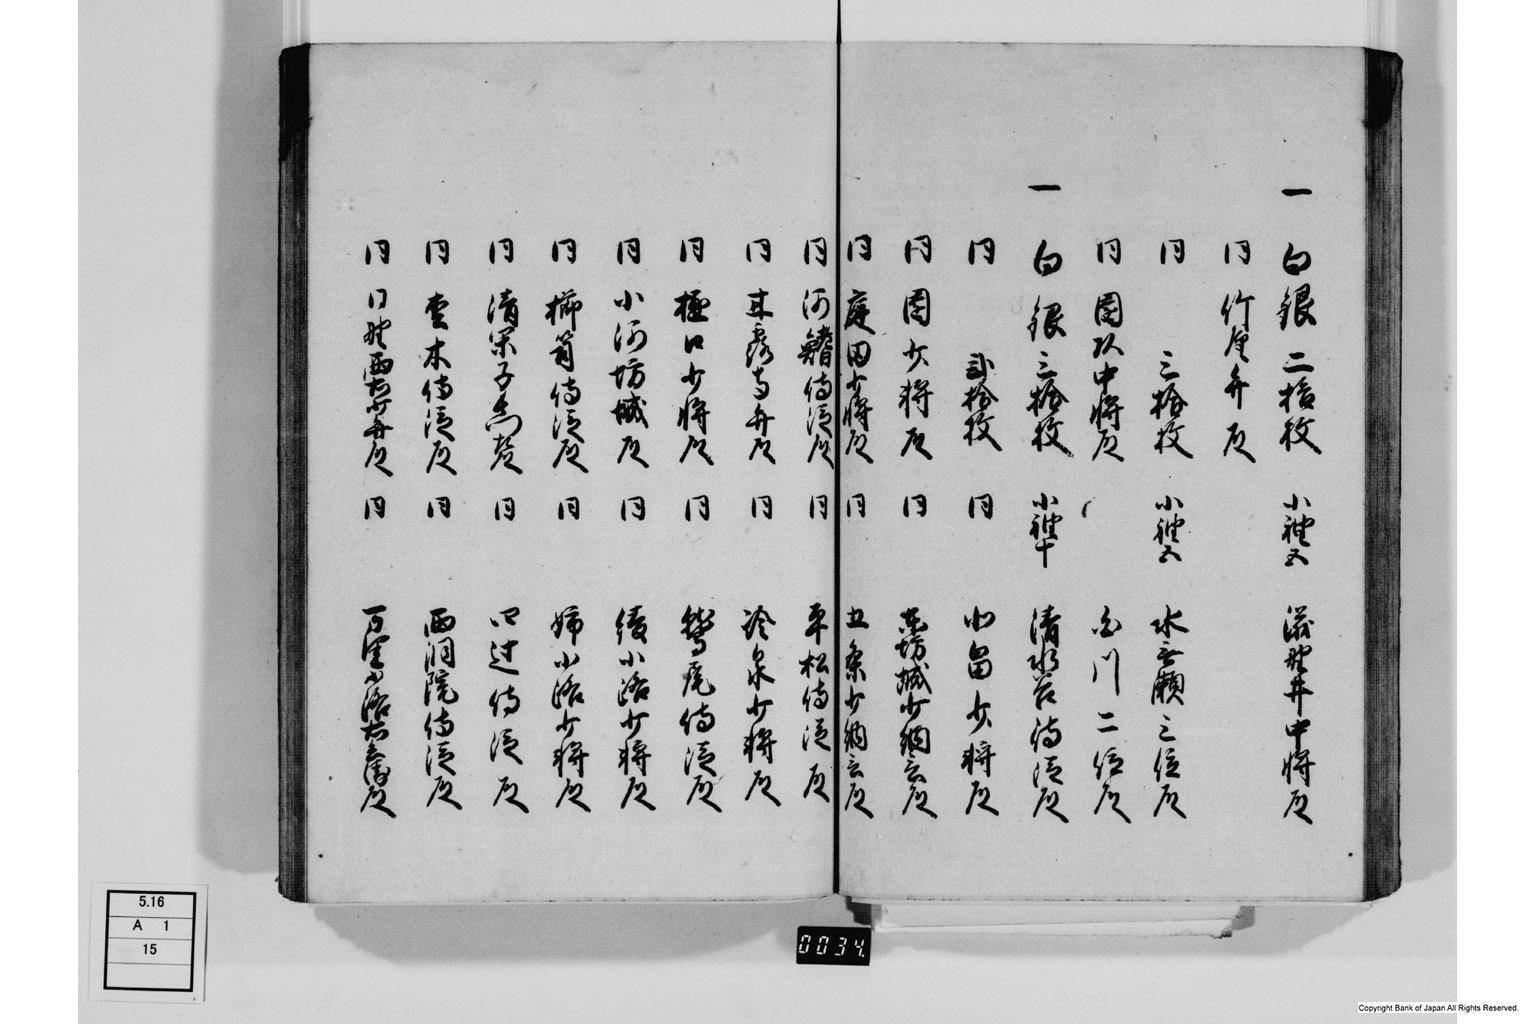 一 白銀二拾枚 小袖五 滋野井中将殿
同 竹屋弁殿
同 三拾枚 小袖五 水無瀬三位殿
同 園頭中将殿 白川二位殿
一 白銀三拾枚 小袖十 清水谷侍従殿
同 弐拾枚 同 北畠少将殿
同 園少将殿 同 東坊城少納言殿
同 庭田少将殿 同 五条少納言殿
同 河鰭侍従殿 同 平松侍従殿
同 甘露寺弁殿 同 冷泉少将殿
同 樋口少将殿 同 鷲尾侍従殿
同 小河坊城殿 同 綾小路少将殿
同 櫛笥侍従殿 同 姉小路少将殿
同 清閑寺 同 四辻侍従殿
同 侍従殿 同 西洞院侍従殿
同 日野西 弁殿 同 万里小路 殿
0034
5.16
A 1
15
Copyright Bank of Japan All Rights Reserved.